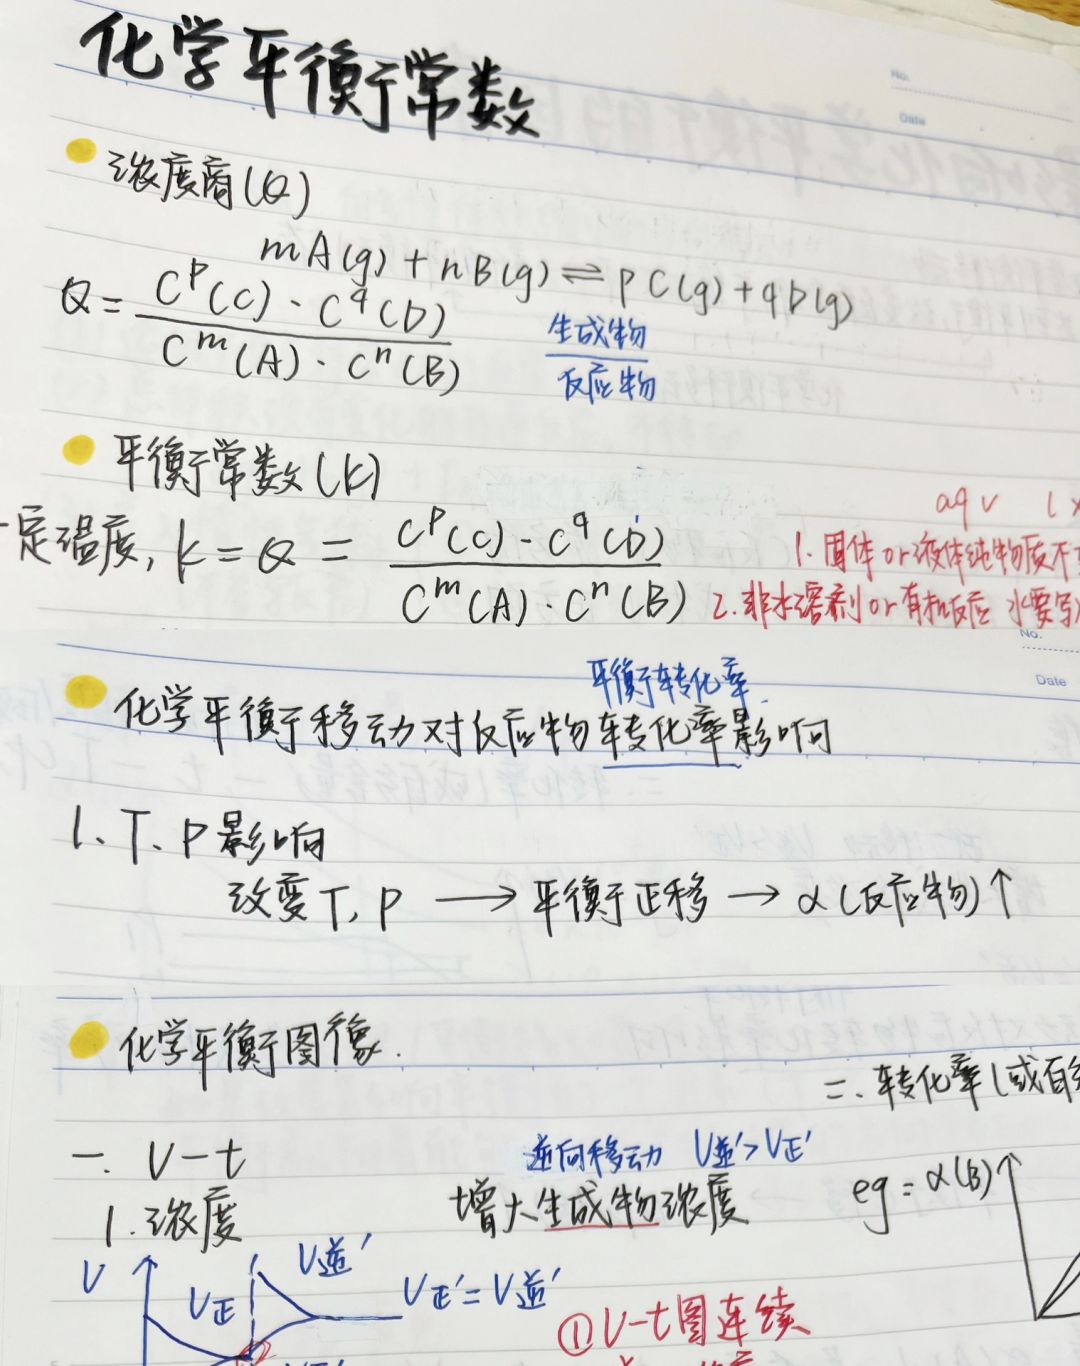 化学平衡常数
No.
Date
浓度商(Q)
mA(g)+nB(g)⇌pC(g)+qD(g)
Q=C^p(C)·C^q(D)/C^m(A)·C^n(B)
生成物
反应物
平衡常数(k)
aq√ l×
一定温度, k=Q=C^p(C)·C^q(D)/C^m(A)·C^n(B)
1.固体or液体纯物质不
2.非水溶剂or有机反应 水要写
No.
Date
平衡转化率.
化学平衡移动对反应物转化率影响
1、T、P影响
改变T,P→平衡正移→α(反应物)↑
化学平衡图像.
二.转化率(或百
一. V-t
逆向移动 V逆'>V正'
1.浓度
增大生成物浓度
eg=α(B)
V
V正
V逆'
V正'=V逆'
①V-t图连续